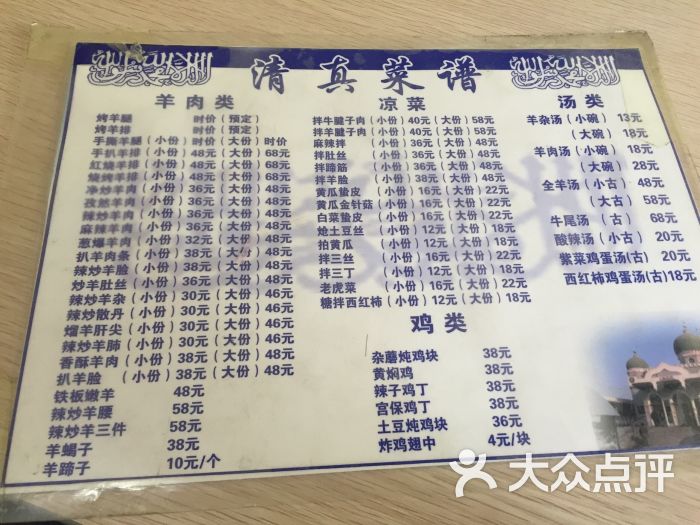 清真菜谱
羊肉类
烤羊腿 时价（预定）
烤羊排 时价（预定）
手撕羊腿（小份）时价（大份）时价
手扒羊排（小份）48元（大份）68元
红烧羊排（小份）48元（大份）68元
烧烤羊排（小份）48元（大份）68元
净炒羊肉（小份）36元（大份）48元
孜然羊肉（小份）36元（大份）48元
辣炒羊肉（小份）36元（大份）48元
麻辣羊肉（小份）36元（大份）48元
葱爆羊肉（小份）32元（大份）48元
扒羊肉条（小份）38元（大份）48元
辣炒羊脸（小份）38元（大份）48元
炒羊肚丝（小份）36元（大份）48元
辣炒羊杂（小份）30元（大份）46元
辣炒散丹（小份）30元（大份）46元
熘羊肝尖（小份）30元（大份）46元
辣炒羊肺（小份）30元（大份）46元
香酥羊肉（小份）38元（大份）48元
扒羊脸（小份）38元（大份）48元
铁板嫩羊 48元
辣炒羊腰 58元
辣炒羊三件 58元
羊蝎子 38元
羊蹄子 10元/个
凉菜
拌牛腱子肉（小份）40元（大份）58元
拌羊腱子肉（小份）40元（大份）58元
麻辣拌（小份）36元（大份）48元
拌肚丝（小份）36元（大份）48元
拌蹄筋（小份）36元（大份）48元
拌羊脸（小份）38元（大份）48元
黄瓜蛰皮（小份）16元（大份）22元
黄瓜金针菇（小份）16元（大份）22元
白菜蛰皮（小份）16元（大份）22元
炝土豆丝（小份）12元（大份）18元
拍黄瓜（小份）12元（大份）18元
拌三丝（小份）16元（大份）22元
拌三丁（小份）16元（大份）22元
老虎菜（小份）12元（大份）18元
糖拌西红柿（小份）12元（大份）18元
鸡类
杂蘑炖鸡块 38元
黄焖鸡 38元
辣子鸡丁 38元
宫保鸡丁 38元
土豆炖鸡块 36元
炸鸡翅中 4元/块
汤类
羊杂汤（小碗）13元
（大碗）18元
羊肉汤（小碗）18元
（大碗）28元
全羊汤（小古）48元
（大古）58元
牛尾汤（古）68元
酸辣汤（小古）20元
紫菜鸡蛋汤（古）20元
西红柿鸡蛋汤(古)18元
大众点评